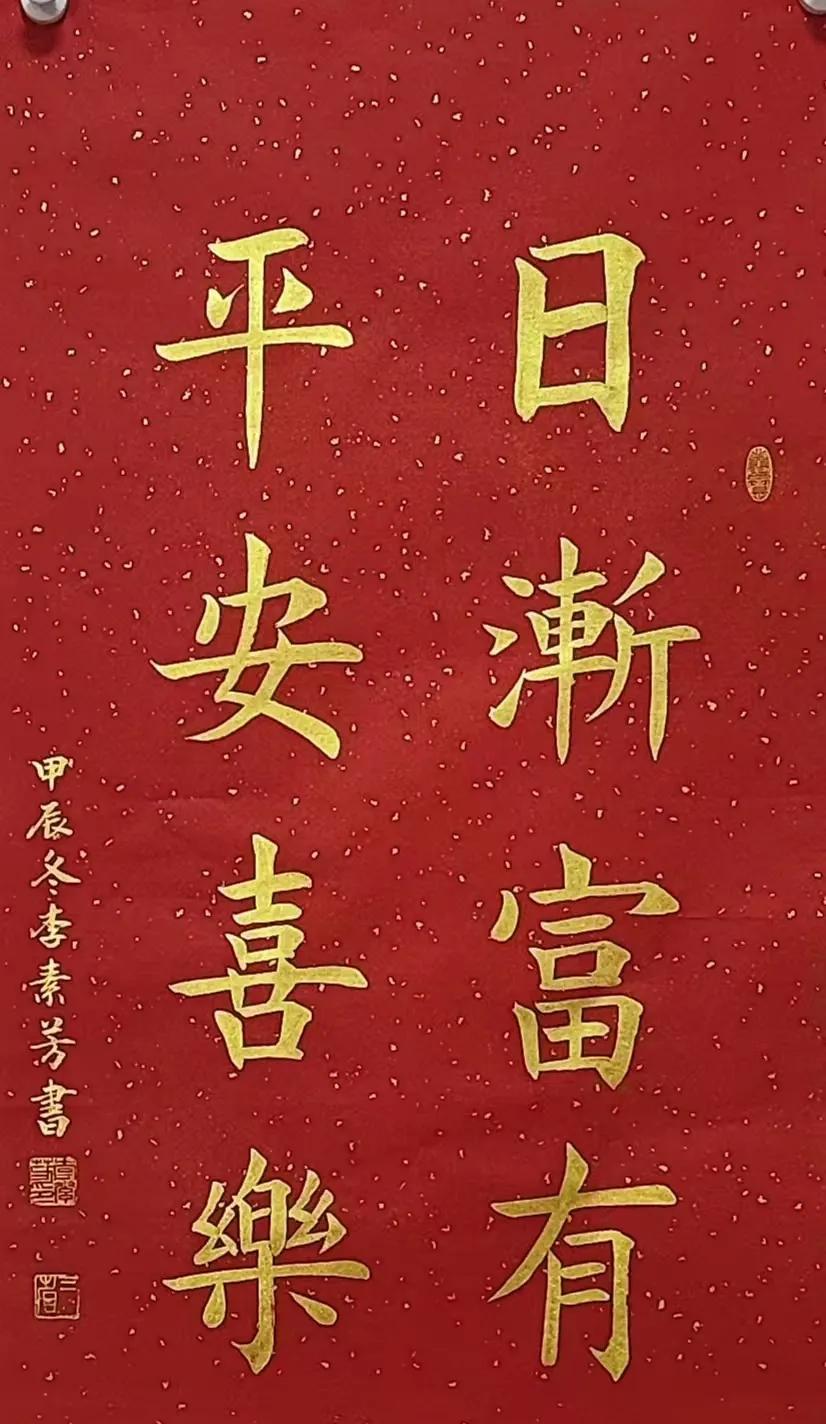 日漸富有
平安喜樂
甲辰冬李素芳書